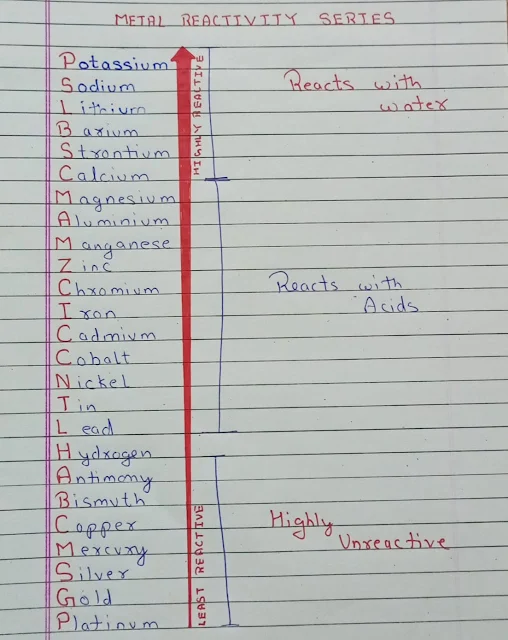 METAL REACTIVITY SERIES
Potassium
Sodium
Lithium
Barium
Strontium
Calcium
Magnesium
Aluminium
Manganese
Zinc
Chromium
Iron
Cadmium
Cobalt
Nickel
Tin
Lead
Hydrogen
Antimony
Bismuth
Copper
Mercury
Silver
Gold
Platinum
HIGHLY REACTIVE
LEAST REACTIVE
Reacts with
water
Reacts with
Acids
Highly
Unreactive